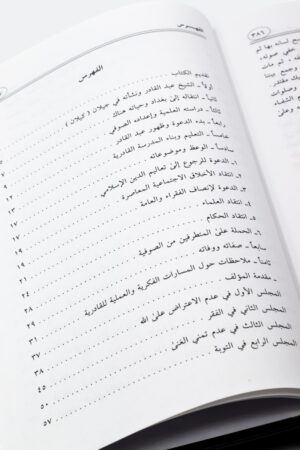 ٣٨٦
الفهرس
الفهرس
تقديم الكتاب
أولاً - الشيخ عبد القادر ونشأته في جيلان (كيلان) ٥
ثانياً - انتقاله إلى بغداد وحياته هناك ٧
ثالثاً - دراسته العلمية وإعداده الصوفي ٩
رابعاً - بدء الدعوة وظهور عبد القادر
خامساً - التعليم وبناء المدرسة القادرية ١٢
سادساً - الوعظ وموضوعاته ١٣
١- الدعوة للرجوع إلى تعاليم الدين الإسلامي ١٧
٢- انتقاد الأخلاق الاجتماعية المعاصرة
٣- الدعوة لإنصاف الفقراء والعامة
٤- انتقاد العلماء
٥- انتقاد الحكام
٦- الحملة على المتطرفين من الصوفية ٢٤
سابعاً - صفاته ووفاته ٢٨
ثامناً - ملاحظات حول المسارات الفكرية والعملية للقادرية ٢٩
- مقدمة المؤلف ٣١
المجلس الأول في عدم الاعتراض على الله ٣٧
المجلس الثاني في الفقر ٣٨
المجلس الثالث في عدم تمني الغنى ٤٥
المجلس الرابع في التوبة ٥٠
٥٧